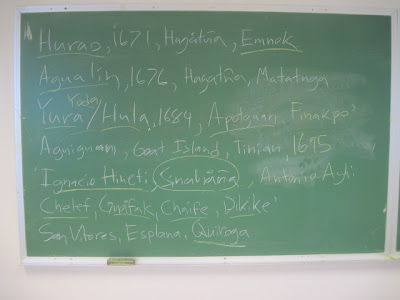 Hurao, 1671, Hagåtña, Emnok
Agualin, 1676, Hagåtña, Matatnga
Yura/Yoda/Hula, 1684, Apotguan, Finakpo'
Agniguam, Goat Island, Tinian, 1695
Ignacio Hineti, Sinahåña, Antonio Ayhi
Chelef, Guåfak, Chaife, Dikike'
San Vitores, Esplana, Quiroga